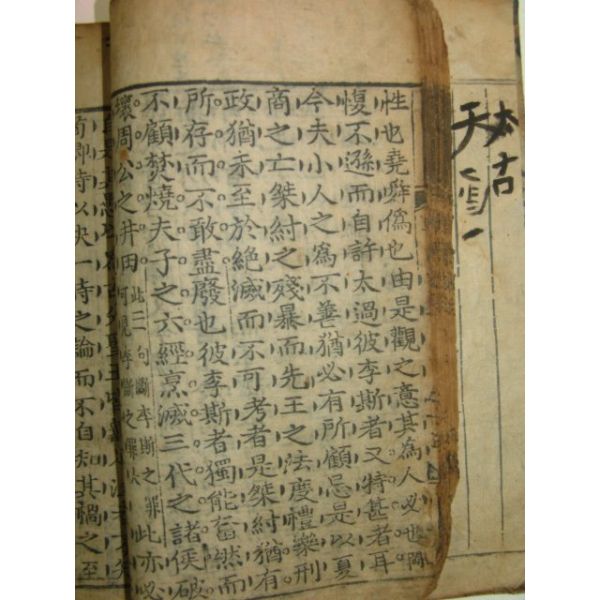 太古
天
性也堯舜僞也由是觀之意其為人必也剛
愎不遜而自許太過彼李斯者又特甚者耳
今夫小人之為不善猶必有所顧忌是以夏
商之亡桀紂之殘暴而先王之法度禮樂刑
政猶未至於絕滅而不可考者是桀紂猶有
所存而不敢盡廢也彼李斯者獨能奮然而
不顧焚燒夫子之六經烹滅三代之諸侯破
壞周公之井田此二句斷李斯之罪此亦必
荀卿特以快一時之論而不自知其禍之至